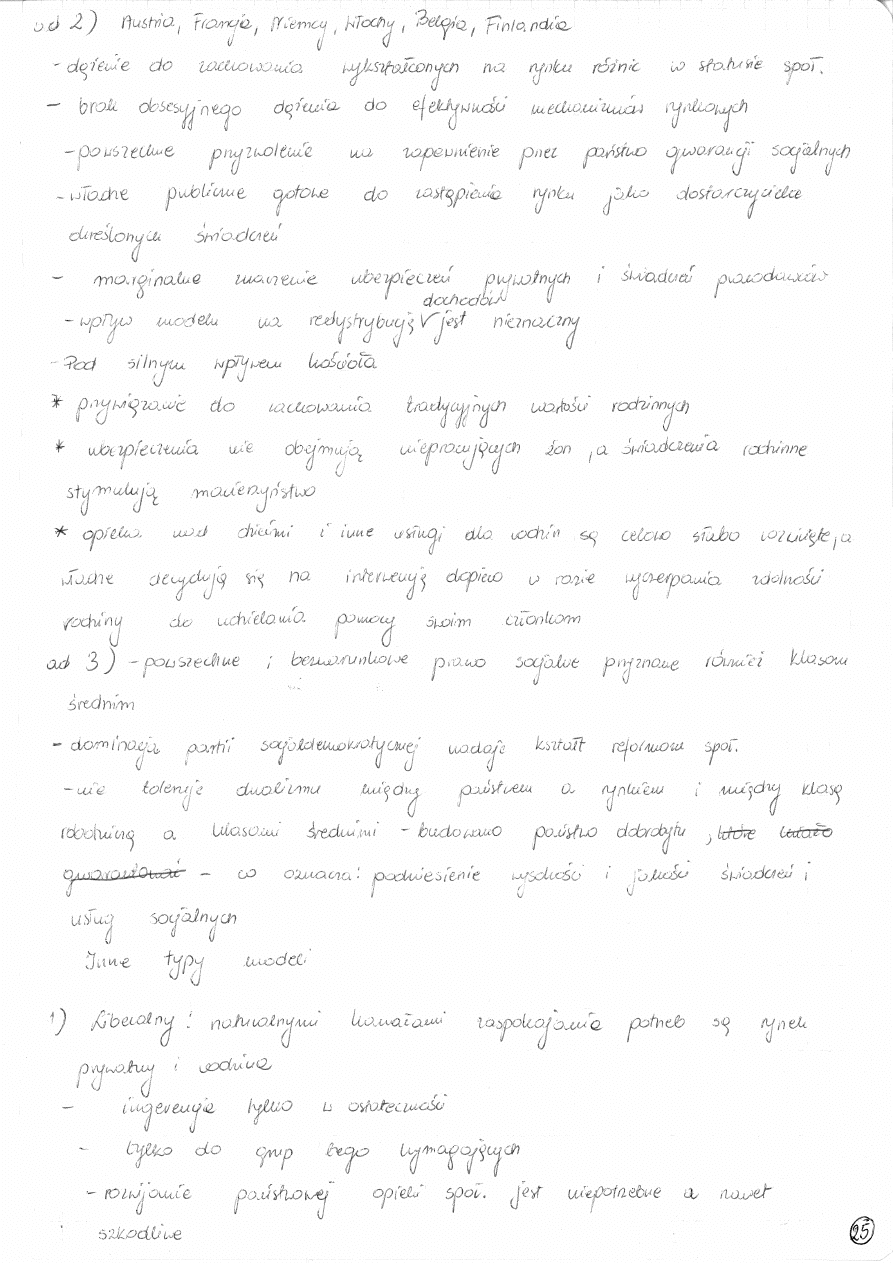 ad 2) Austria, Francja, Niemcy, Włochy, Belgia, Finlandia
- dążenie do zachowania wykształconych na rynku różnic w statusie społ.
- brak obsesyjnego dążenia do efektywności mechanizmów rynkowych
- powszechne przyzwolenie na zapewnienie przez państwo gwarancji socjalnych
- władze publiczne gotowe do zastąpienia rynku jako dostarczyciela
określonych świadczeń
- marginalne znaczenie ubezpieczeń prywatnych i świadczeń pracodawców
dochodów
- wpływ modelu na redystrybucję V jest nieznaczny
- Pod silnym wpływem kościoła
* przywiązanie do zachowania tradycyjnych wartości rodzinnych
* ubezpieczenia nie obejmują niepracujących żon, a świadczenia rodzinne
stymulują macierzyństwo
* opieka nad dziećmi i inne usługi dla rodzin są celowo słabo rozwinięte, a
władze decydują się na interwencję dopiero w razie wyczerpania zdolności
rodziny do udzielania pomocy swoim członkom
ad 3) - powszechne i bezwarunkowe prawo socjalne przyznane również klasom
średnim
- dominacja partii socjaldemokratycznej nadaje kształt reformom społ.
- nie toleruje dualizmu między państwem a rynkiem i między klasą
robotniczą a klasami średnimi - budowano państwo dobrobytu, które
gwarantować - co oznacza: podniesienie wysokości i jakości świadczeń i
usług socjalnych
Inne typy modeli
1) Liberalny: naturalnymi kanałami zaspokajania potrzeb są rynek
prywatny i rodzina
- ingerencja tylko w ostateczności
- tylko do grup tego wymagających
- rozwijanie państwowej opieki społ. jest niepotrzebne a nawet
szkodliwe
25